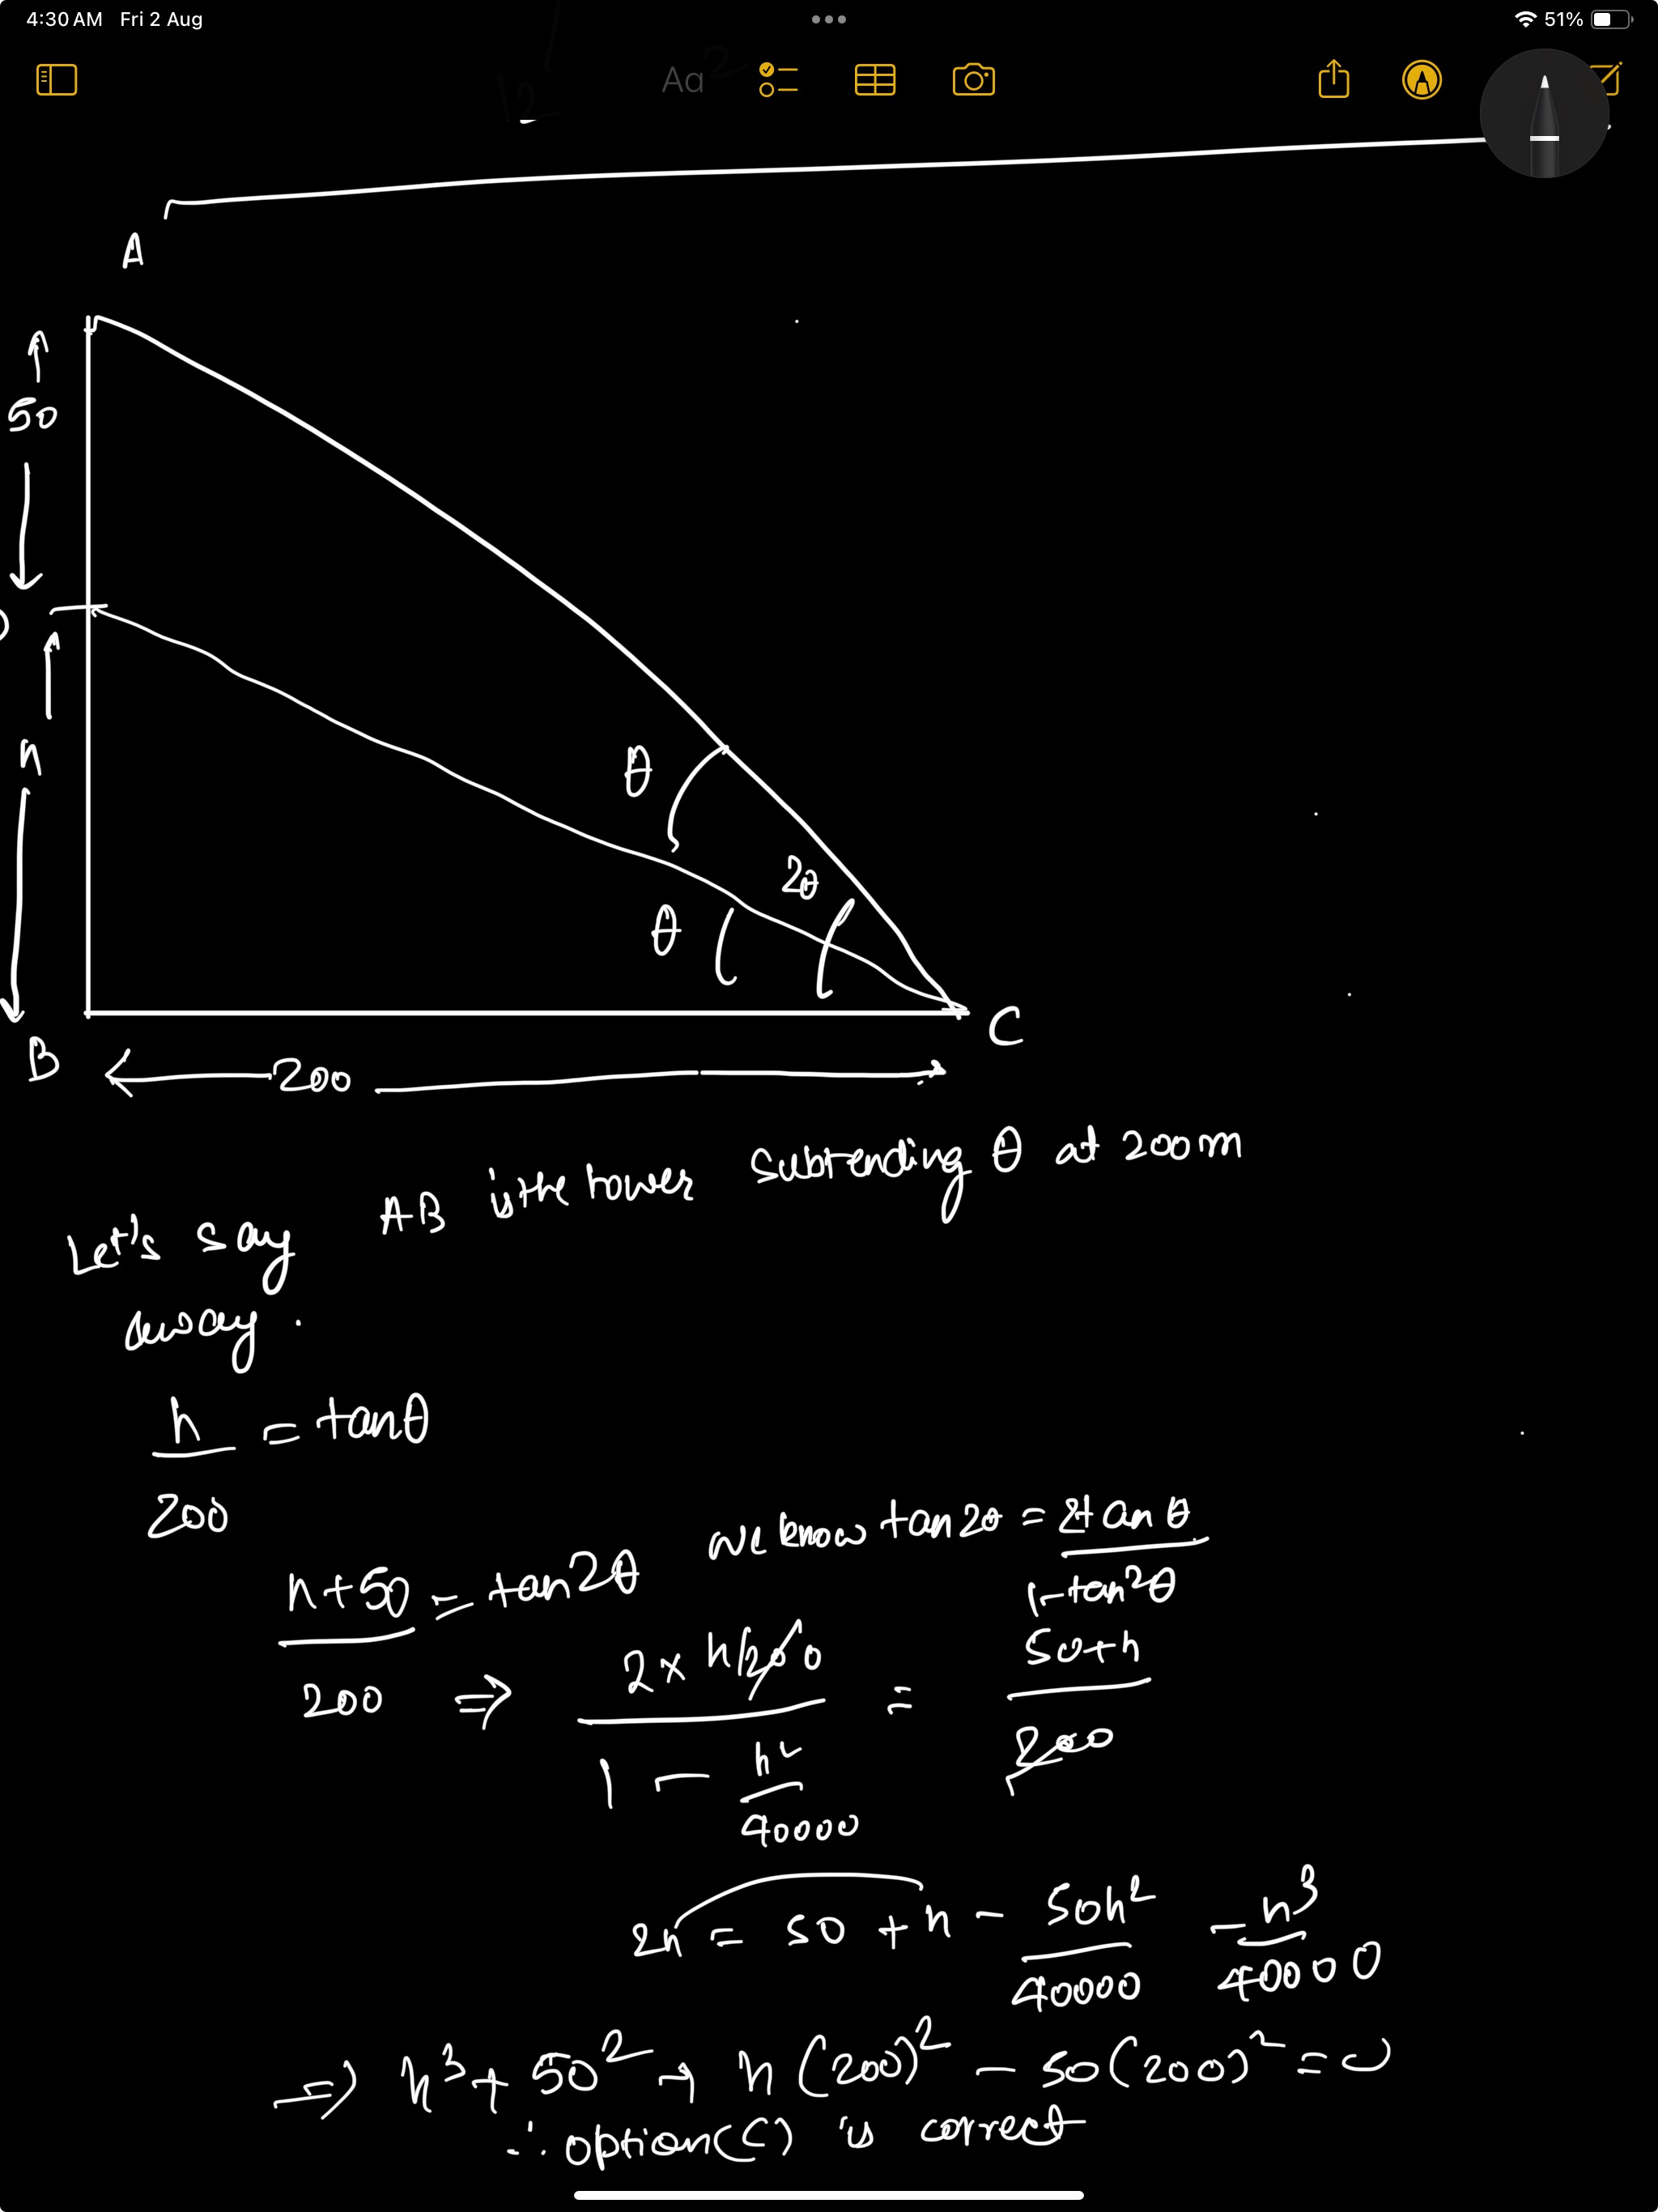 4:30 AM Fri 2 Aug
51%
Aa
A
50
h
θ
2θ
θ
C
B
200
Let's say AB is the tower subtending θ at 200m
away.
h/200 = tanθ
h+50/200 = tan2θ we know tan2θ = 2tanθ/1-tan²θ
⇒ 2×h/200/1 - h²/40000 = 50+h/200
2h = 50 + h - 50h²/40000 - h³/40000
⇒ h³ + 50² + h(200)² - 50(200)² = 0
∴ option(C) is correct